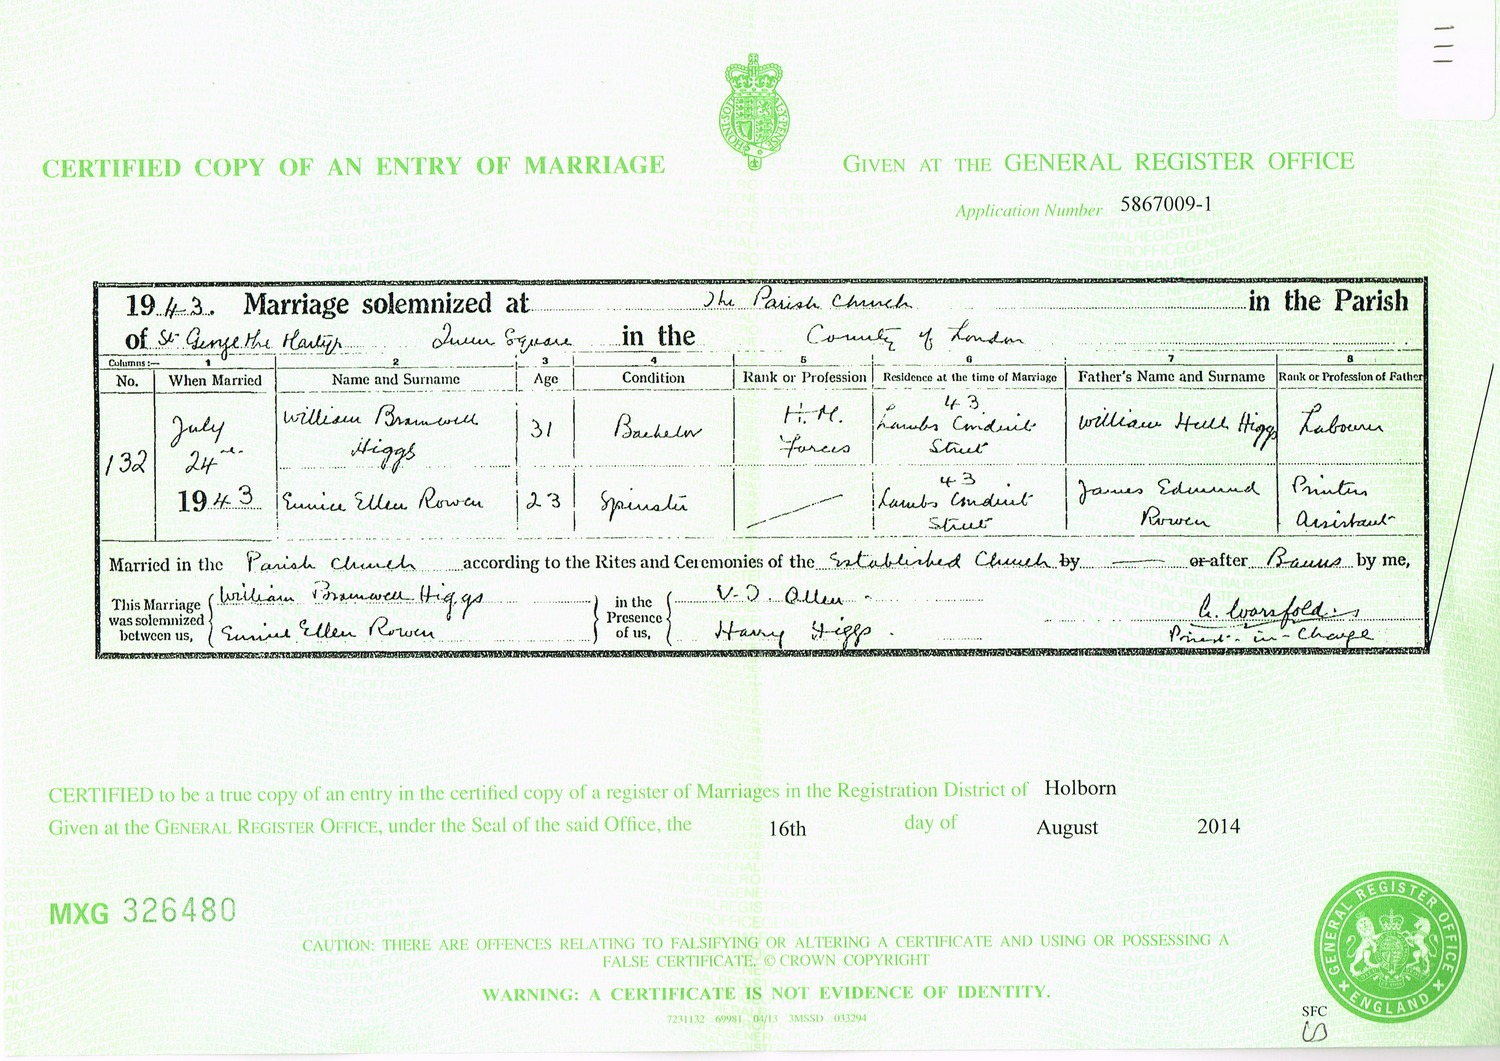 CERTIFIED COPY OF AN ENTRY OF MARRIAGE
GIVEN AT THE GENERAL REGISTER OFFICE
Application Number 5867009-1
1943. Marriage solemnized at The Parish Church in the Parish
of St George the Martyr Queen Square in the County of London
Columns:— 1 2 3 4 5 6 7 8
No. When Married Name and Surname Age Condition Rank or Profession Residence at the time of Marriage Father's Name and Surname Rank or Profession of Father
132 July 24th 1943
William Bramwell Higgs 31 Bachelor H.M. Forces 43 Lambs Conduit Street William Hull Higgs Labourer
Eunice Ellen Rowen 23 Spinster 43 Lambs Conduit Street James Edmund Rowen Printers Assistant
Married in the Parish Church according to the Rites and Ceremonies of the Established Church by or after Banns by me,
This Marriage was solemnized between us,
William Bramwell Higgs
Eunice Ellen Rowen
in the Presence of us,
V. J. Allen
Harry Higgs.
G. Worsfold
Priest-in-Charge
CERTIFIED to be a true copy of an entry in the certified copy of a register of Marriages in the Registration District of Holborn
Given at the GENERAL REGISTER OFFICE, under the Seal of the said Office, the 16th day of August 2014
MXG 326480
CAUTION: THERE ARE OFFENCES RELATING TO FALSIFYING OR ALTERING A CERTIFICATE AND USING OR POSSESSING A
FALSE CERTIFICATE. © CROWN COPYRIGHT
WARNING: A CERTIFICATE IS NOT EVIDENCE OF IDENTITY.
7231132 69981 04/13 3MSSD 033294
GENERAL REGISTER OFFICE
ENGLAND
SFC